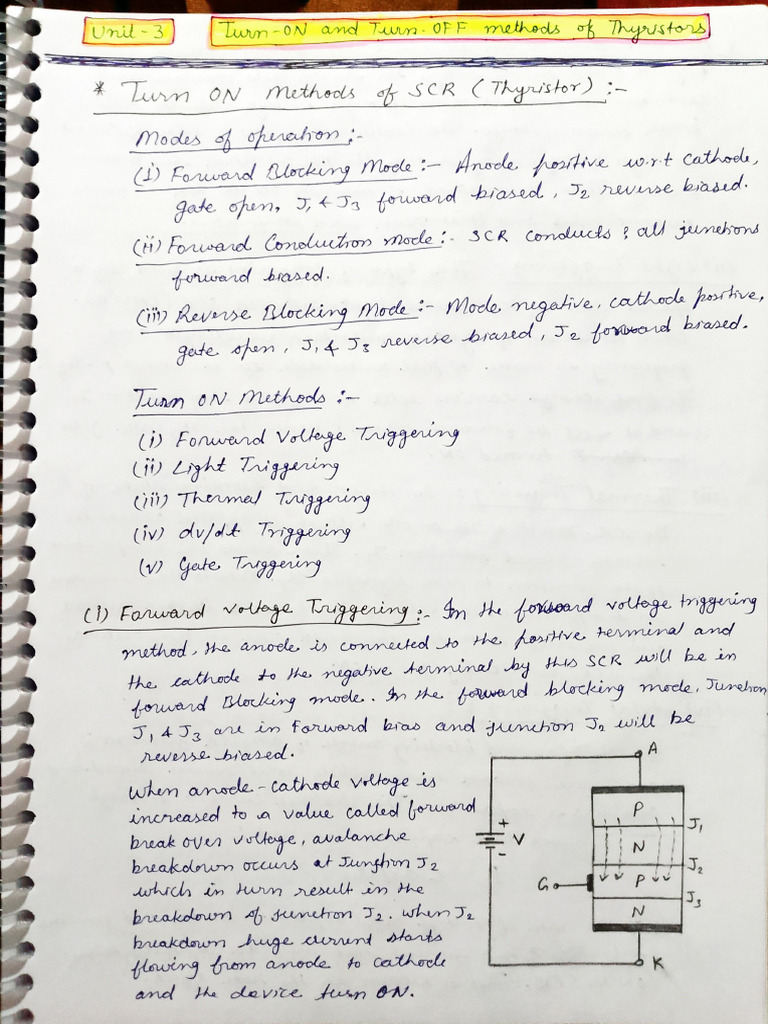 Unit-3 Turn-ON and Turn-OFF methods of Thyristors
* Turn ON Methods of SCR (Thyristor) :-
Modes of operation :-
(i) Forward Blocking Mode :- Anode positive w.r.t cathode,
gate open, J1 & J3 forward biased, J2 reverse biased.
(ii) Forward Conduction Mode :- SCR conducts & all junctions
forward biased.
(iii) Reverse Blocking Mode :- Mode negative, cathode positive,
gate open, J1 & J3 reverse biased, J2 forward biased.
Turn ON Methods :-
(i) Forward Voltage Triggering
(ii) Light Triggering
(iii) Thermal Triggering
(iv) dv/dt Triggering
(v) Gate Triggering
(i) Forward Voltage Triggering :- In the forward voltage triggering
method, the anode is connected to the positive terminal and
the cathode to the negative terminal by this SCR will be in
forward Blocking mode. In the forward blocking mode, Junction
J1 & J3 are in Forward bias and junction J2 will be
reverse biased.
When anode-cathode voltage is
increased to a value called forward
break over voltage, avalanche
breakdown occurs at Jungtion J2
which in turn result in the
breakdown of junction J2. when J2
breakdown huge current starts
flowing from anode to cathode
and the device turn ON.
A
P
J1
+
V
-
N
J2
G
P
J3
N
K